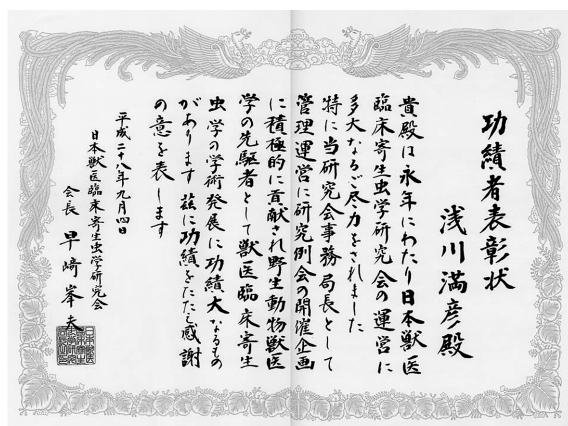 功績者表彰状
浅川満彦殿
貴殿は永年にわたり日本獣医
臨床寄生虫学研究会の運営に
多大なるご尽力をされました
特に当研究会事務局長として
管理運営に研究例会の開催企画
に積極的に貢献され野生動物獣医
学の先駆者として獣医臨床寄生
虫学の学術発展に功績大なるもの
があります 茲に功績をたたえ感謝
の意を表します
平成二十八年九月四日
日本獣医臨床寄生虫学研究会
会長 早﨑峯夫